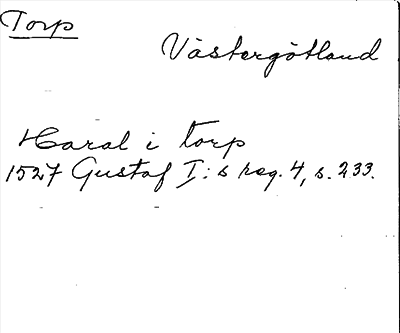 Torp
Västergötland
Haral i torp
1527 Gustaf I:s reg. 4, s. 233.